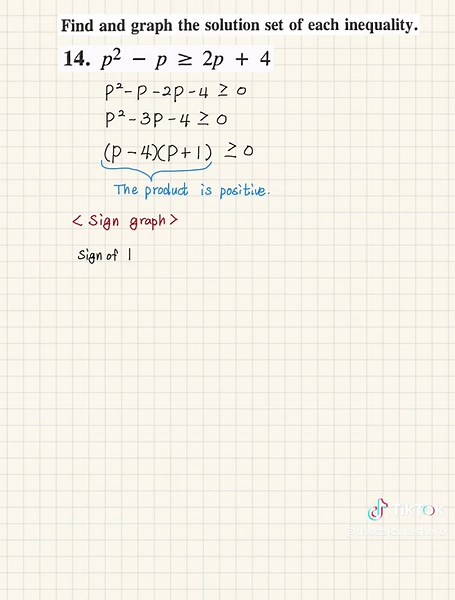 Find and graph the solution set of each inequality.
14. p² − p ≥ 2p + 4
p²-p-2p-4 ≥ 0
p²-3p-4 ≥ 0
(p-4)(p+1) ≥ 0
The product is positive.
< Sign graph >
Sign of |
TikTok